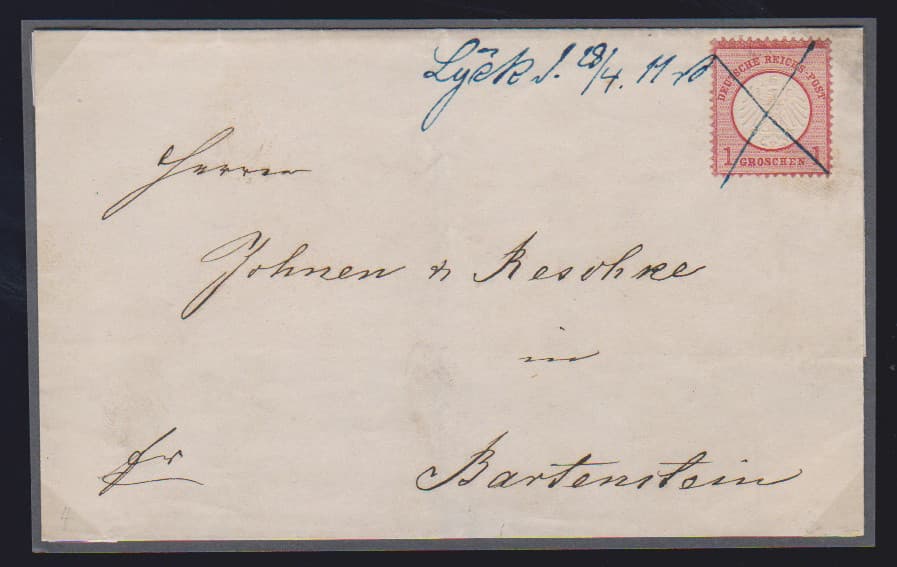 Lyck d. 28/4. 11
DEUTSCHE REICHS-POST
1 GROSCHEN 1
Herren
Johnen & Reschke
in
fr
Bartenstein